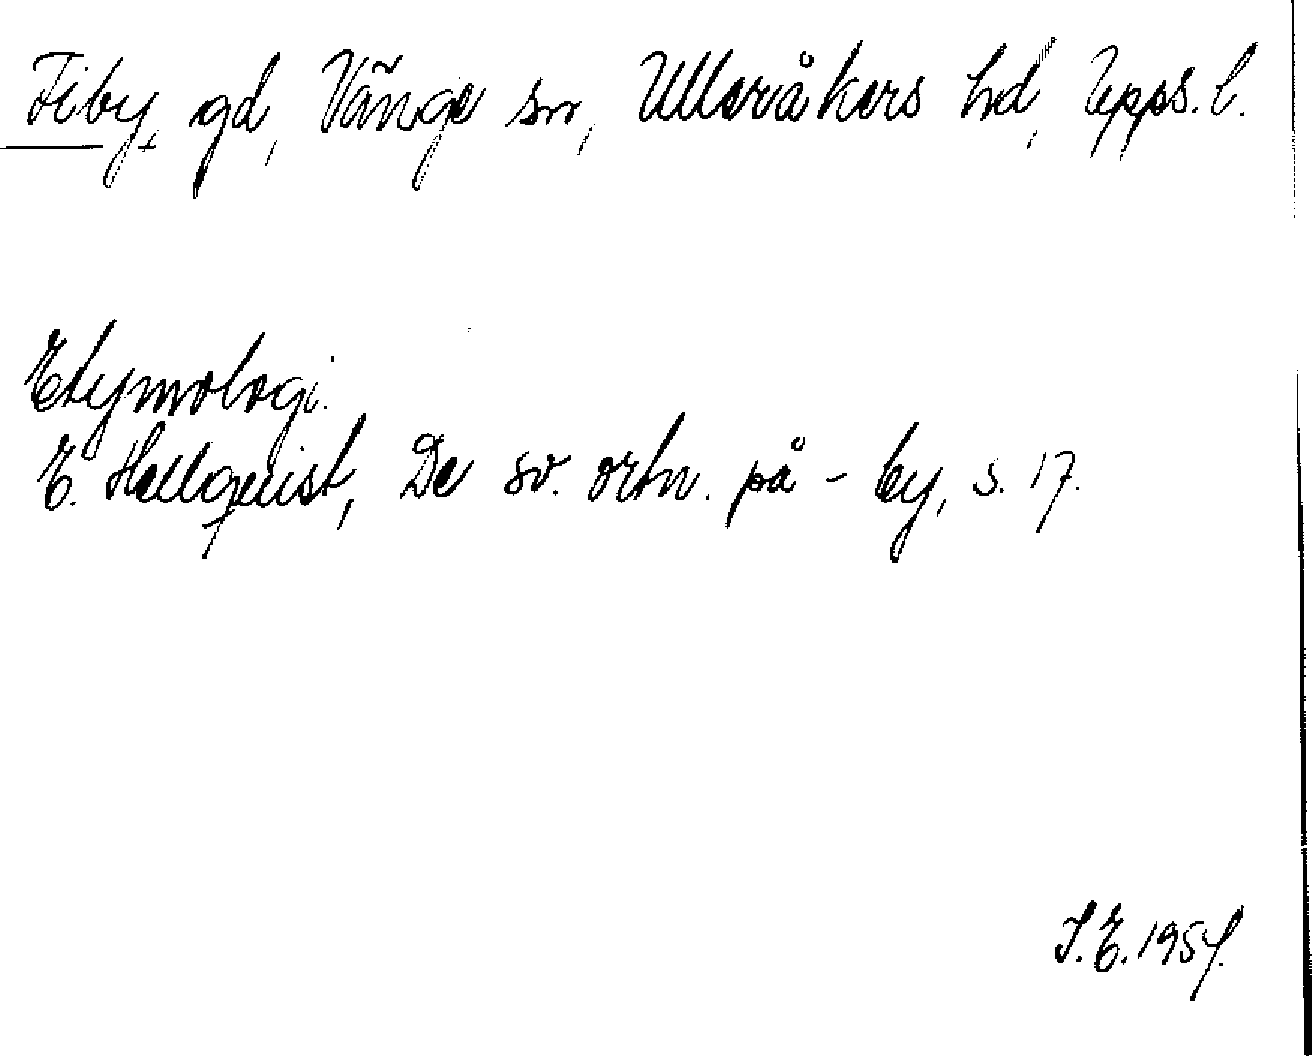 Fiby, gd, Vänge sn, Ulleråkers hd, Upps. l.
Etymologi.
E. Hellquist, De sv. ortn. på -by, s. 17.
S. E. 1954.